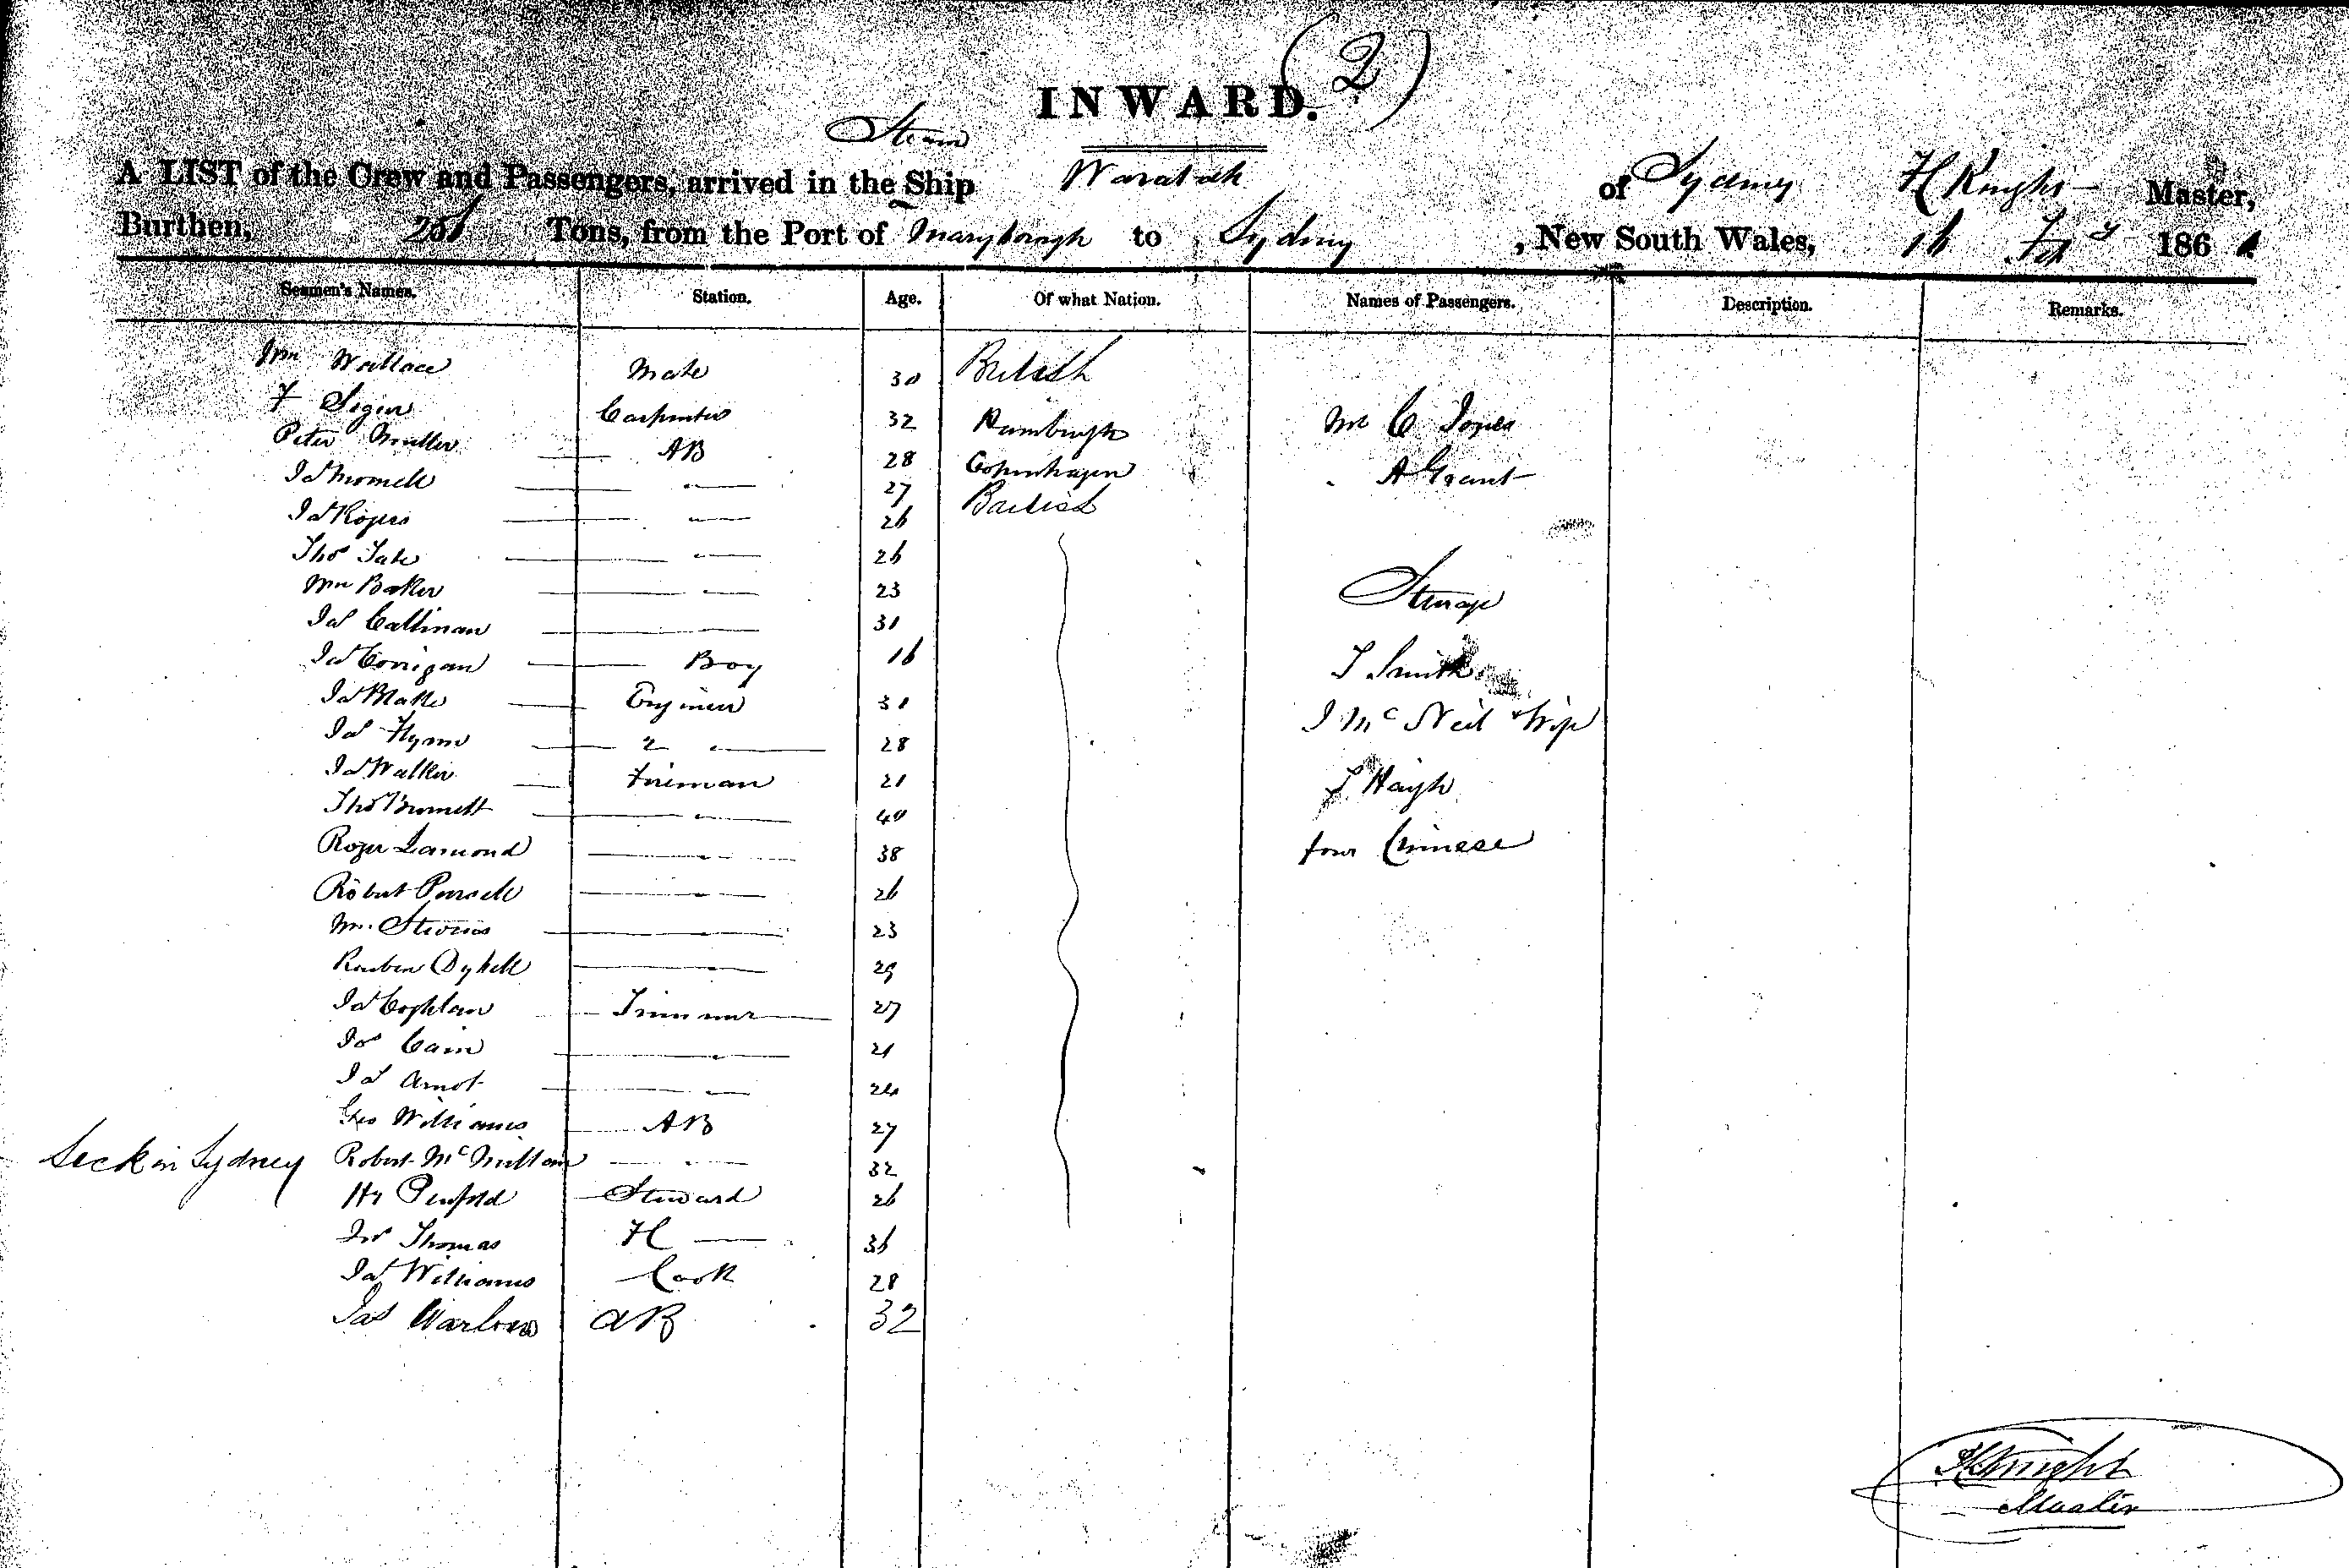 (2)
INWARD.
Steam
A LIST of the Crew and Passengers, arrived in the Ship Waratah of Sydney H Knight Master,
Burthen, Tons, from the Port of Maryborough to Sydney, New South Wales, 16 186
Seamen's Names. Station. Age. Of what Nation. Names of Passengers. Description. Remarks.
Wm Wallace Mate 30 British
F Carpenter 32 Hamburgh Mr C Jones
Peter AB 28 Copenhagen A Grant
Jas 27 British
Jas Rogers 26
Thos Tate 26
Wm Baker 23 Steerage
Jas Callinan 31
Jas Corrigan Boy 16 T Smith
Jas Blake Engineer 31 J McNeil & Wife
Jas Flynn 2 28
Jas Walker Fireman 21 T Haigh
Thos 40
Roger Lamond 38 four Chinese
Robert Purcell 26
Wm. 23
Reuben 29
Jas Coghlan Trimmer 27
Jas Cain 21
Jas Arnot 24
Geo Williams AB 27
Sick in Sydney Robert McMillan 32
Hy Penfold Steward 26
Jos Thomas 36
Jas Williams Cook 28
Jas AB 32
H Knight
Master